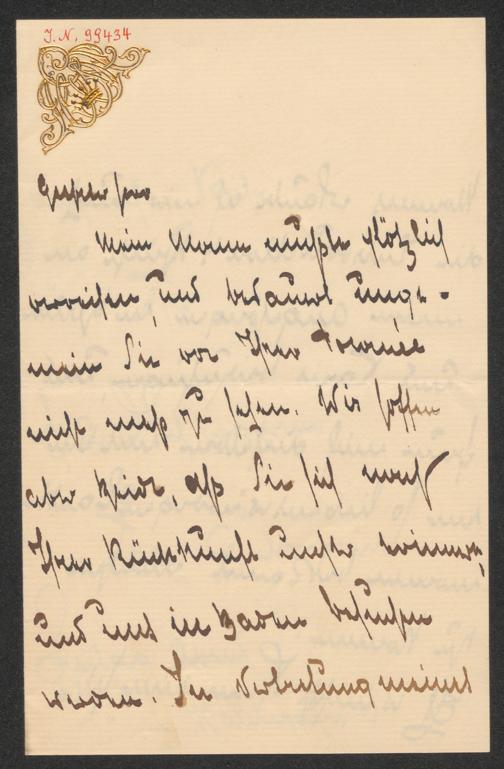 I.N. 99434
Geehrter Herr
Mein Mann mußte plötzlich
verreisen, und bedauert unge-
mein Sie vor Ihrer Tournée
nicht mehr zu sehen. Wir hoffen
aber Beide, daß Sie sich nach
Ihrer Rückkunft unser erinnern,
und uns in Baden besuchen
werden. In Vertretung meines